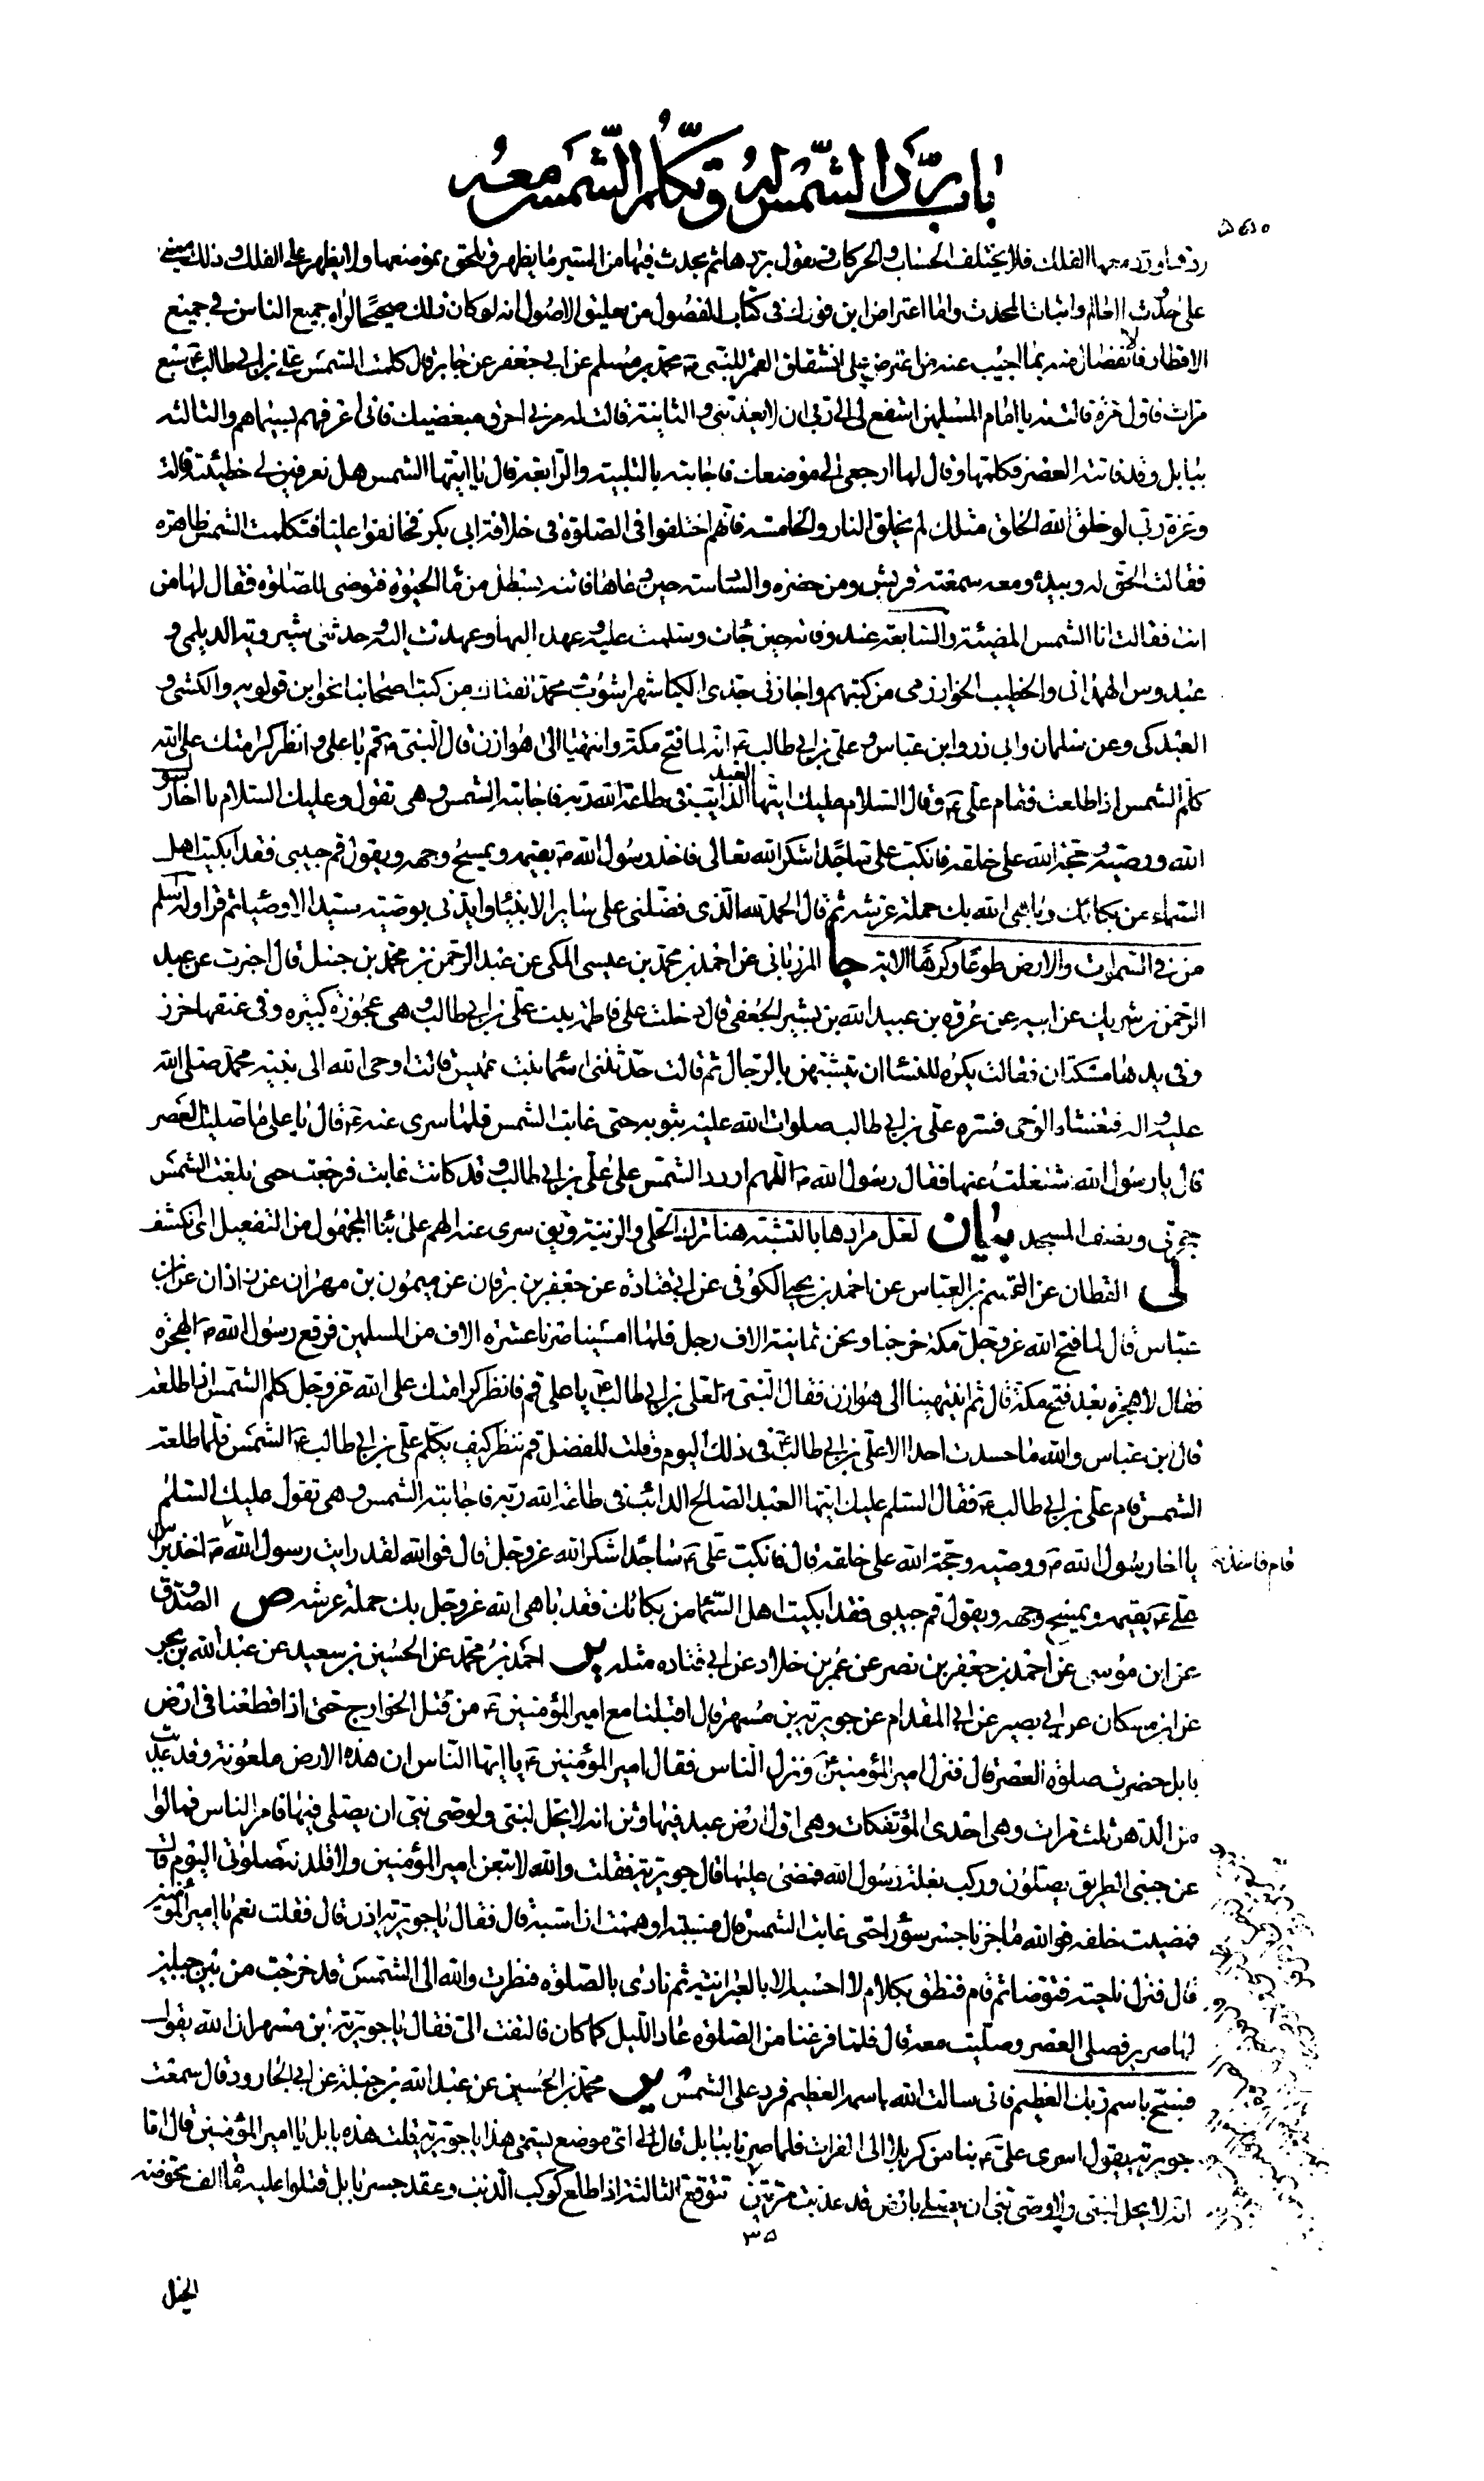 باب ردّ الشّمس له و تكلّم الشّمس معه
ردها و رد معها الفلك فلا يختلف الحساب والحركات و نقول بردها ثم يحدث فيها من السير ما يظهر و تلحق بموضعها ولا يظهر على الفلك و ذلك مبني
على حدث العالم و اثبات المحدث واما اعتراض ابن فورك في كتاب الفصول من تعليق الاصول انه لو كان ذلك صحيحا لراه جميع الناس في جميع
الاقطار فالانفصال منه بما اجيب عنه من اعترض على انشقاق القمر للنبي ص محمد بن مسلم عن ابي جعفر عن جابر قال كلمت الشمس علي بن ابي طالب ع سبع
مرات فاول مرة قالت له يا امام المسلمين اشفع لي الى ربي ان لا يعذبني والثانية قالت له مرني احرق مبغضيك فاني اعرفهم بسيماهم والثالثة
ببابل و قد فاتته العصر فكلمها وقال لها ارجعي الى موضعك فاجابته بالتلبية والرابعة قال يا ايتها الشمس هل تعرفين لي خطيئة قالت
وعزة ربي لو خلق الله الخلق مثلك لم يخلق النار والخامسة فانهم اختلفوا في الصلوة في خلافة ابي بكر فخالفوا عليا فتكلمت الشمس ظاهرة
فقالت الحق له وبيده ومعه سمعته قريش ومن حضره والسادسة حين دعاها فاتته بسطل من ماء الحيوة فتوضى للصلوة فقال لها من
انت فقالت انا الشمس المضيئة والسابعة عند وفاته حين جاءت وسلمت عليه وعهد اليها وعهدت اليه وحدثني شيرويه الديلمي و
عبدوس الهمداني والخطيب الخوارزمي من كتبهم واجازني جدي الكيا شهراشوب ومحمد الفتال من كتب اصحابنا نحو ابن قولويه والكشي و
العبدكي وعن سلمان وابي ذر وابن عباس وعلي بن ابي طالب ع انه لما فتح مكة وانتهينا الى هوازن قال النبي ص قم يا علي وانظر كرامتك على الله
كلم الشمس اذا طلعت فقام علي ع وقال السلام عليك ايتها العبد الدائب في طاعة الله ربه فاجابته الشمس وهي تقول وعليك السلام يا اخا رسول
الله ووصيه وحجة الله على خلقه فانكب علي ساجدا شكرا لله تعالى فاخذ رسول الله ص يقيمه ويمسح وجهه ويقول قم حبيبي فقد ابكيت اهل
السماء من بكائك وباهى الله بك حملة عرشه ثم قال الحمد لله الذي فضلني على سائر الانبياء وايدني بوصيه سيد الاوصياء ثم قرا وله اسلم
من في السموات والارض طوعا وكرها الاية جا المرزباني عن احمد بن محمد بن عيسى المكي عن عبد الرحمن بن محمد بن حنبل قال اخبرت عن عبد
الرحمن بن شريك عن ابيه عن عروة بن عبيد الله بن بشير الجعفي قال دخلت على فاطمة بنت علي بن ابي طالب وهي عجوزة كبيرة وفي عنقها خرز
وفي يدها مسكتان فقالت يكره للنساء ان يتشبهن بالرجال ثم قالت حدثتني اسماء بنت عميس قالت اوحى الله الى نبيه محمد صلى الله
عليه واله فتغشاه الوحي فستره علي بن ابي طالب صلوات الله عليه بثوبه حتى غابت الشمس فلما سرى عنه ع قال يا علي ما صليت العصر
قال يا رسول الله شغلت عنها فقال رسول الله ص اللهم اردد الشمس على علي بن ابي طالب وقد كانت غابت فرجعت حتى بلغت الشمس
حجرتي ونصف المسجد بيان لعل مرادها بالتشبه هنا ترك الحلي والزينة وقوله سرى عنه الهم على بناء المجهول من التفعيل اي انكشف
لى القطان عن القسم بن العباس عن احمد بن يحيى الكوفي عن ابي قتادة عن جعفر بن برقان عن ميمون بن مهران عن زاذان عن ابن
عباس قال لما فتح الله عز وجل مكة خرجنا ونحن ثمانية الاف رجل فلما امسينا صرنا عشرة الاف من المسلمين فرفع رسول الله ص الهجرة
فقال لا هجرة بعد فتح مكة قال ثم انتهينا الى هوازن فقال النبي ص لعلي بن ابي طالب ع يا علي قم فانظر كرامتك على الله عز وجل كلم الشمس اذا طلعت
قال ابن عباس والله ما حسدت احدا الا علي بن ابي طالب ع في ذلك اليوم وقلت للفضل قم ننظر كيف يكلم علي بن ابي طالب ع الشمس فلما طلعت
الشمس قام علي بن ابي طالب ع فقال السلم عليك ايتها العبد الصالح الدائب في طاعة الله ربه فاجابته الشمس وهي تقول عليك السلم
يا اخا رسول الله ص ووصيه وحجة الله على خلقه قال فانكب علي ع ساجدا شكرا لله عز وجل قال فوالله لقد رايت رسول الله ص اخذ براس
علي ع يقيمه ويمسح وجهه ويقول قم حبيبي فقد ابكيت اهل السماء من بكائك فقد باهى الله عز وجل بك حملة عرشه ص الصدوق
عن ابن موسى عن احمد بن جعفر بن نصر عن عمر بن خلاد عن ابي قتادة مثله ير احمد بن محمد عن الحسين بن سعيد عن عبد الله بن بحر
عن ابن مسكان عن ابي بصير عن ابي المقدام عن جويرية بن مسهر قال اقبلنا مع امير المؤمنين ع من قتل الخوارج حتى اذا قطعنا في ارض
بابل حضرت صلوة العصر قال فنزل امير المؤمنين ع ونزل الناس فقال امير المؤمنين ع يا ايها الناس ان هذه الارض ملعونة وقد عذبت
من الدهر ثلث مرات وهي احدى المؤتفكات وهي اول ارض عبد فيها وثن انه لا يحل لنبي ولوصي نبي ان يصلي فيها فامر الناس فمالوا
عن جنبي الطريق يصلون وركب بغلة رسول الله فمضى عليها قال جويرية فقلت والله لاتبعن امير المؤمنين ولاقلدنه صلوتي اليوم قال
فمضيت خلفه فوالله ما جزنا جسر سورا حتى غابت الشمس قال فسببته او هممت ان اسبه قال فقال يا جويرية اذن قال فقلت نعم يا امير المؤمنين
قال فنزل ناحية فتوضا ثم قام فنطق بكلام لا احسبه الا بالعبرانية ثم نادى بالصلوة فنظرت والله الى الشمس قد خرجت من بين جبلين
لها صرير فصلى العصر وصليت معه قال فلما فرغنا من الصلوة عاد الليل كما كان فالتفت الي فقال يا جويرية بن مسهر ان الله يقول
فسبح باسم ربك العظيم فاني سالت الله باسمه العظيم فرد علي الشمس ير محمد بن الحسين عن عبد الله بن جبلة عن ابي الجارود قال سمعت
جويرية يقول اسرى علي ع بنا من كربلا الى الفرات فلما صرنا ببابل قال لي اي موضع يسمى هذا يا جويرية قلت هذه بابل يا امير المؤمنين قال اما
انه لا يحل لنبي ولا وصي نبي ان يصلي بارض قد عذبت مرتين تتوقع الثالثة اذا طلع كوكب الذنب وعقد جسر بابل قتلوا عليه مائة الف تخوضه
٣٥
الخيل